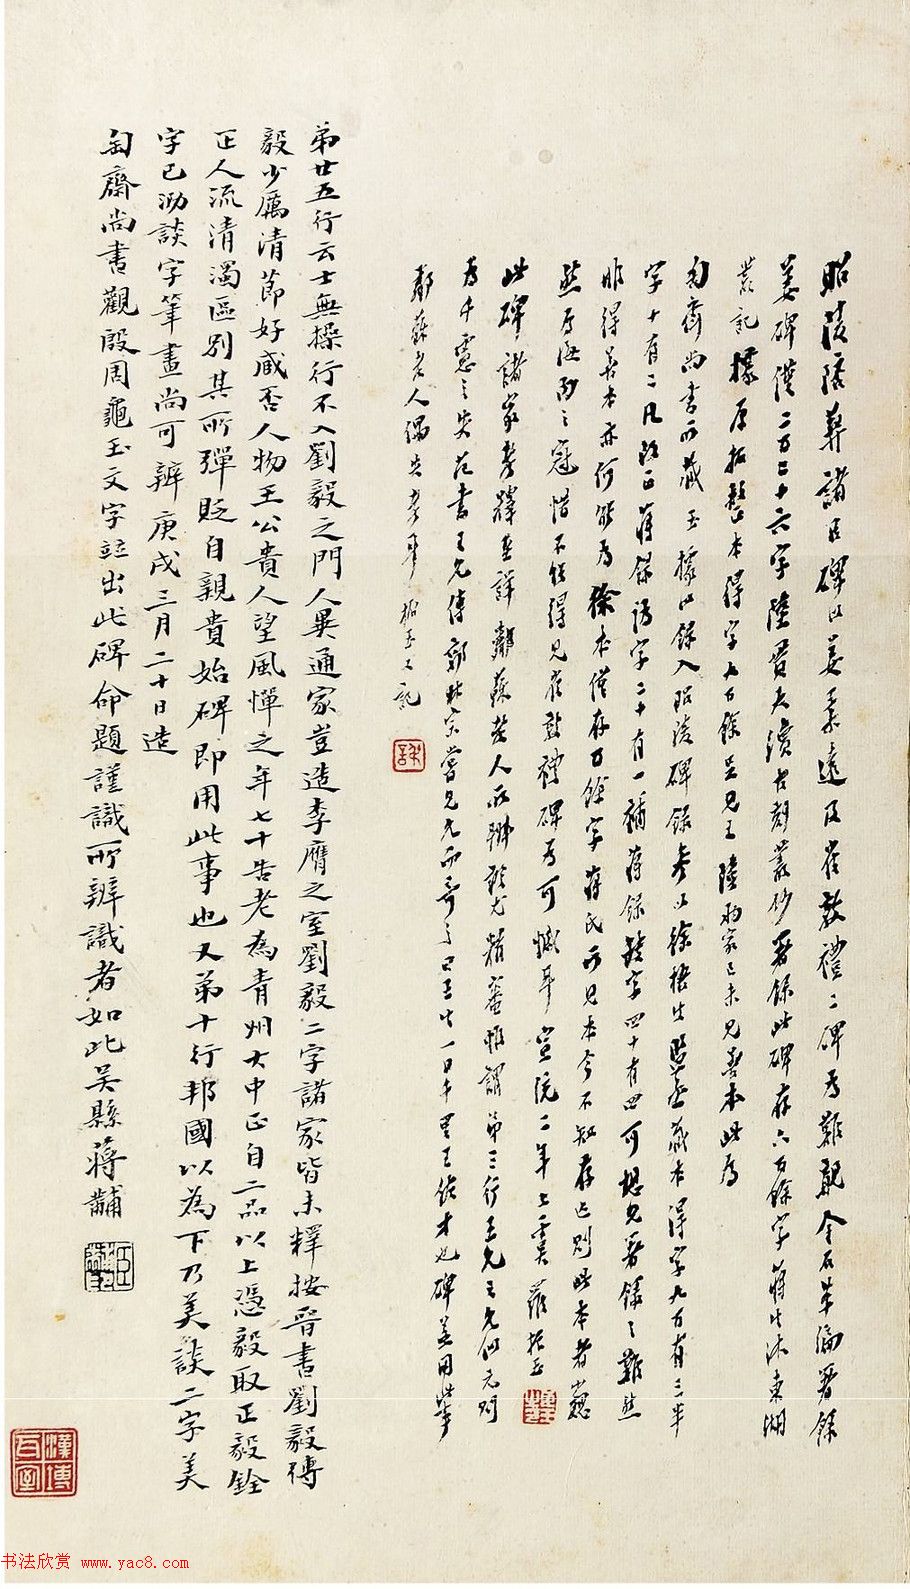 昭陵陪葬諸臣碑以姜柔遠及崔敦禮二碑為難覯金石萃編著錄
姜碑僅二百三十六字陸賈夫續古刻叢鈔著錄此碑存六百餘字蔣生沐東湖
叢記據原拓整本得字七百餘足見王陸兩家已未見善本此為
匋齋尚書所藏玉據以錄入昭陵碑錄參以徐
字十有二凡改正蔣錄誤字二十有一補蔣錄缺字四十有四可想見著錄之難然
非得善本亦何能為徐本僅存百餘字蔣氏所見本今不知存亡則此本者巍
然為海內之冠惜不能得見崔敦禮碑為可憾耳宣統二年七月羅振玉
此碑諸家考釋至詳鄰蘇老人所斠證尤精審惟謂第三行王允之允似元則
為千慮之失范書王允傳郭林宗嘗見允而奇之曰王生一日千里王佐才也碑益用此事
鄰蘇老人偶失考耳 振玉又記
弟廿五行云士無操行不入劉毅之門人異通家豈造李膺之室劉毅二字諸家皆未釋按晉書劉毅傳
毅少厲清節好臧否人物王公貴人望風憚之年七十告老為青州大中正自二品以上憑毅取正毅銓
正人流清濁區別其所彈貶自親貴始碑即用此事也又弟十行邦國以為下乃美談二字美
字已泐談字筆畫尚可辨庚戌三月二十日造
匋齋尚書觀殷周龜玉文字竝出此碑命題謹識所辨識者如此吳縣蔣黼
书法欣赏 www.yac8.com